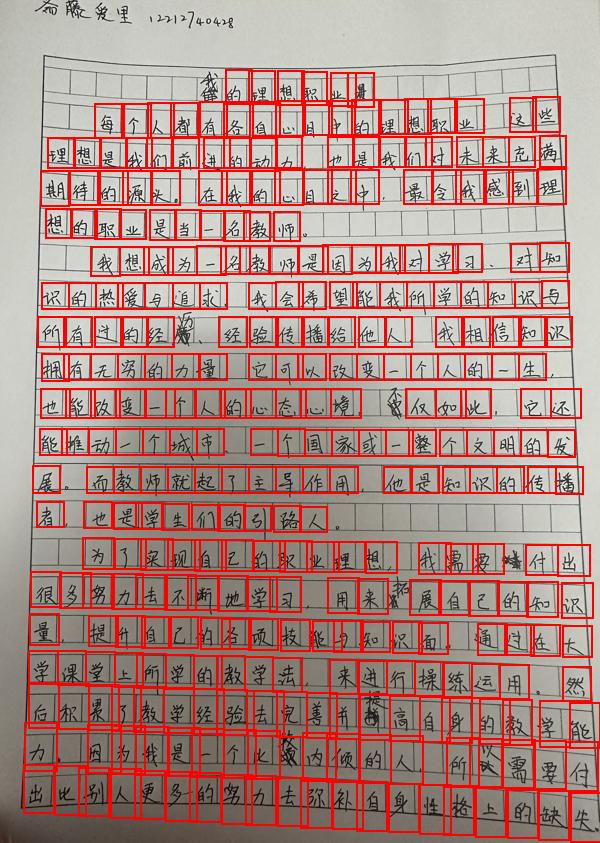 斋藤爱里 12212740428
我的理想职业
每个人都有各自心目中的理想职业，这些
理想是我们前进的动力，也是我们对未来充满
期待的源头。在我的心目之中，最令我感到理
想的职业是当一名教师。
我想成为一名教师是因为我对学习、对知
识的热爱与追求，我会希望能我所学的知识与
所有过的经历、经验传播给他人，我相信知识
拥有无穷的力量，它可以改变一个人的一生，
也能改变一个人的心态心境，不仅如此，它还
能推动一个城市、一个国家或一整个文明的发
展。而教师就起了主导作用，他是知识的传播
者，也是学生们的引路人。
为了实现自己的职业理想，我需要付出
很多努力去不断地学习，用来拓展自己的知识
量，提升自己的各项技能与知识面。通过在大
学课堂上所学的教学法，来进行操练运用。然
后积累了教学经验去完善并提高自身的教学能
力。因为我是一个比较内倾的人，所以需要付
出比别人更多一的努力去弥补自身性格上的缺失。